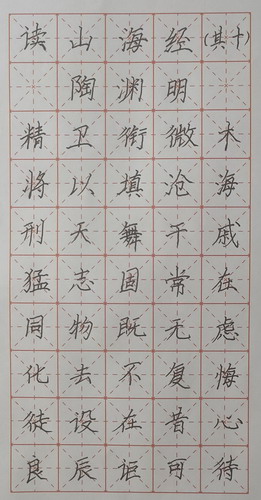 读山海经(其十)
陶渊明
精卫衔微木
将以填沧海
刑天舞干戚
猛志固常在
同物既无虑
化去不复悔
徒设在昔心
良辰讵可待